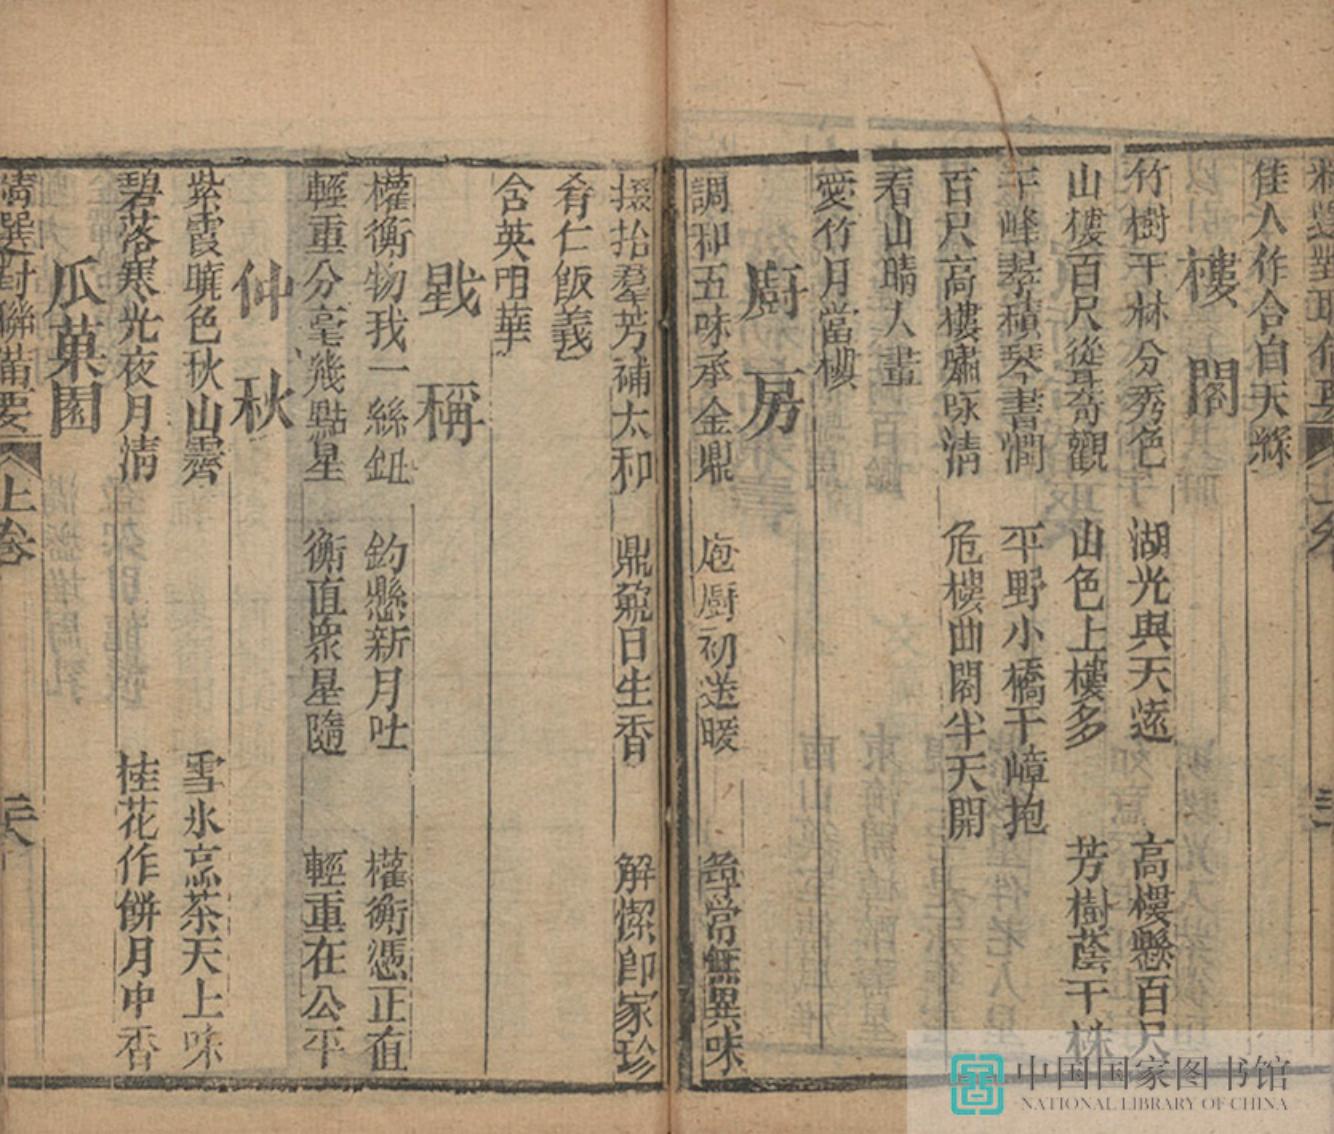 佳人作合自天緣
樓閣
竹樹千林分秀色 湖光與天遠 高樓懸百尺
山樓百尺從奇觀 山色上樓多 芳樹蔭千株
千峰翠積琴書潤 平野小橋千嶂抱
百尺高樓嘯咏清 危樓曲閣半天開
看山晴入畫
愛竹月當樓
廚房
調和五味承金鼎 庖廚初送暖 尋常無異味
掇拾羣芳補太和 鼎鼐日生香 解潔即家珍
肴仁飯義
含英明華
戥稱
權衡物我一絲紐 鈎懸新月吐 權衡憑正直
輕重分毫幾點星 衡直衆星隨 輕重在公平
仲秋
紫霞曉色秋山霽 雪水烹茶天上味
碧落寒光夜月清 桂花作餅月中香
瓜菓園
精選對聯備要 上卷
中国国家图书馆
NATIONAL LIBRARY OF CHINA